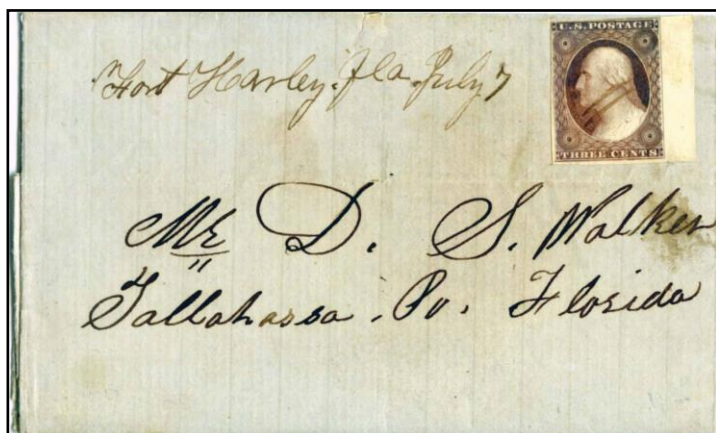 Fort Harley. Fla. July 7
U.S. POSTAGE
THREE CENTS
Mr D. S. Walker
Tallahassa. Po. Florida